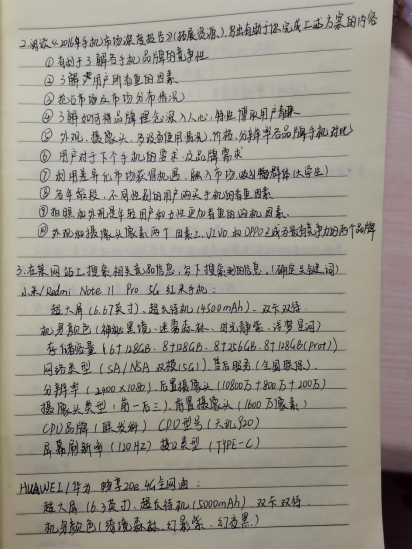 2.阅读《2016年手机市场深度报告》(拓展资源),写出有助于你完成上述方案的内容
①有助于了解各手机品牌的竞争性
②了解用户所看重的因素
③抢占市场及市场分布情况
④了解如何将品牌理念深入人心,博取用户青睐
⑤外观,摄像头,多设备使用情况,价格,分辨率等品牌手机对比
⑥用户对于下个手机的需求及品牌需求
⑦利用差异化市场获得机遇,融入市场,吸引物群体(大学生)
⑧各年龄段,不同性别的用户购买手机的看重因素
⑨拍照和外观是年轻用户和女性更加看重的购机因素.
⑩外观和摄像头像素两个因素上,VIVO和OPPO已成为最有竞争力的两个品牌
3.在某网站上搜索相关商品信息,写下搜索到的信息。(确定关键词)
小米/Redmi Note 11 Pro 5G 红米手机:
超大屏(6.67英寸)、超长待机(4500mAh)、双卡双待
机身颜色(神秘黑境、迷雾森林、时光静紫、浅梦星河)
存储容量(6+128GB、8+128GB、8+256GB、8+128GB(Pro+))
网络类型(SA/NSA 双模(5G)、售后服务(全国联保)、
分辨率(2400×1080)、后置摄像头(10800万+800万+200万)
摄像头类型:前一后三)、前置摄像头(1600万像素)
CPU品牌(联发科) CPU型号(天玑920)
屏幕刷新率(120HZ) 接口类型(TYPE-C)
HUAWEI/华为 畅享20e 4G全网通:
超大屏(6.3英寸)、超长待机(5000mAh)、双卡双待
机身颜色(幻夜黑)